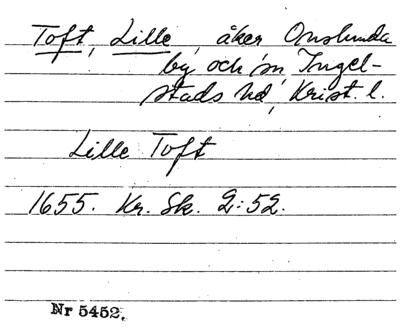 Toft, Lille, åker Onslunda
by och sn, Ingel-
stads hd, Krist. l.
Lille Toft
1655. Kr. Sk. 2:52.
Nr 5452.